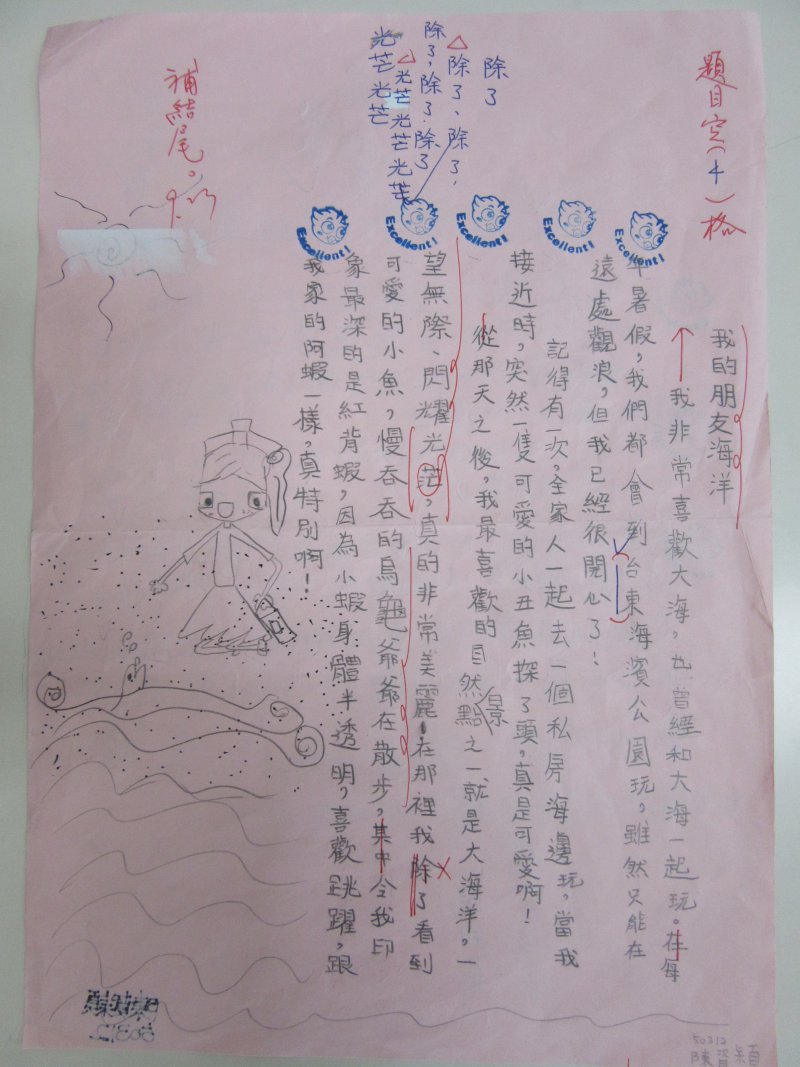 題目空(4)格
我的朋友海洋
我非常喜歡大海，也曾經和大海一起玩。在每
年暑假，我們都會到台東海濱公園玩，雖然只能在
遠處觀浪，但我已經很開心了！
記得有一次，全家人一起去一個私房海邊玩，當我
接近時，突然一隻可愛的小丑魚探了頭，真是可愛啊！
從那天之後，我最喜歡的自然景點之一就是大海洋。一
望無際、閃耀光茫，真的非常美麗！在那裡我除了看到
可愛的小魚，慢吞吞的烏龜爺爺在散步，其中令我印
象最深的是紅背蝦，因為小蝦身體半透明，喜歡跳躍，跟
我家的阿蝦一樣，真特別啊！
除了
除了、除了、
除了，除了、除了
光芒光芒光芒
光芒光芒
補結尾。
Excellent!
Excellent!
Excellent!
Excellent!
Excellent!
50312
50312
陳資穎